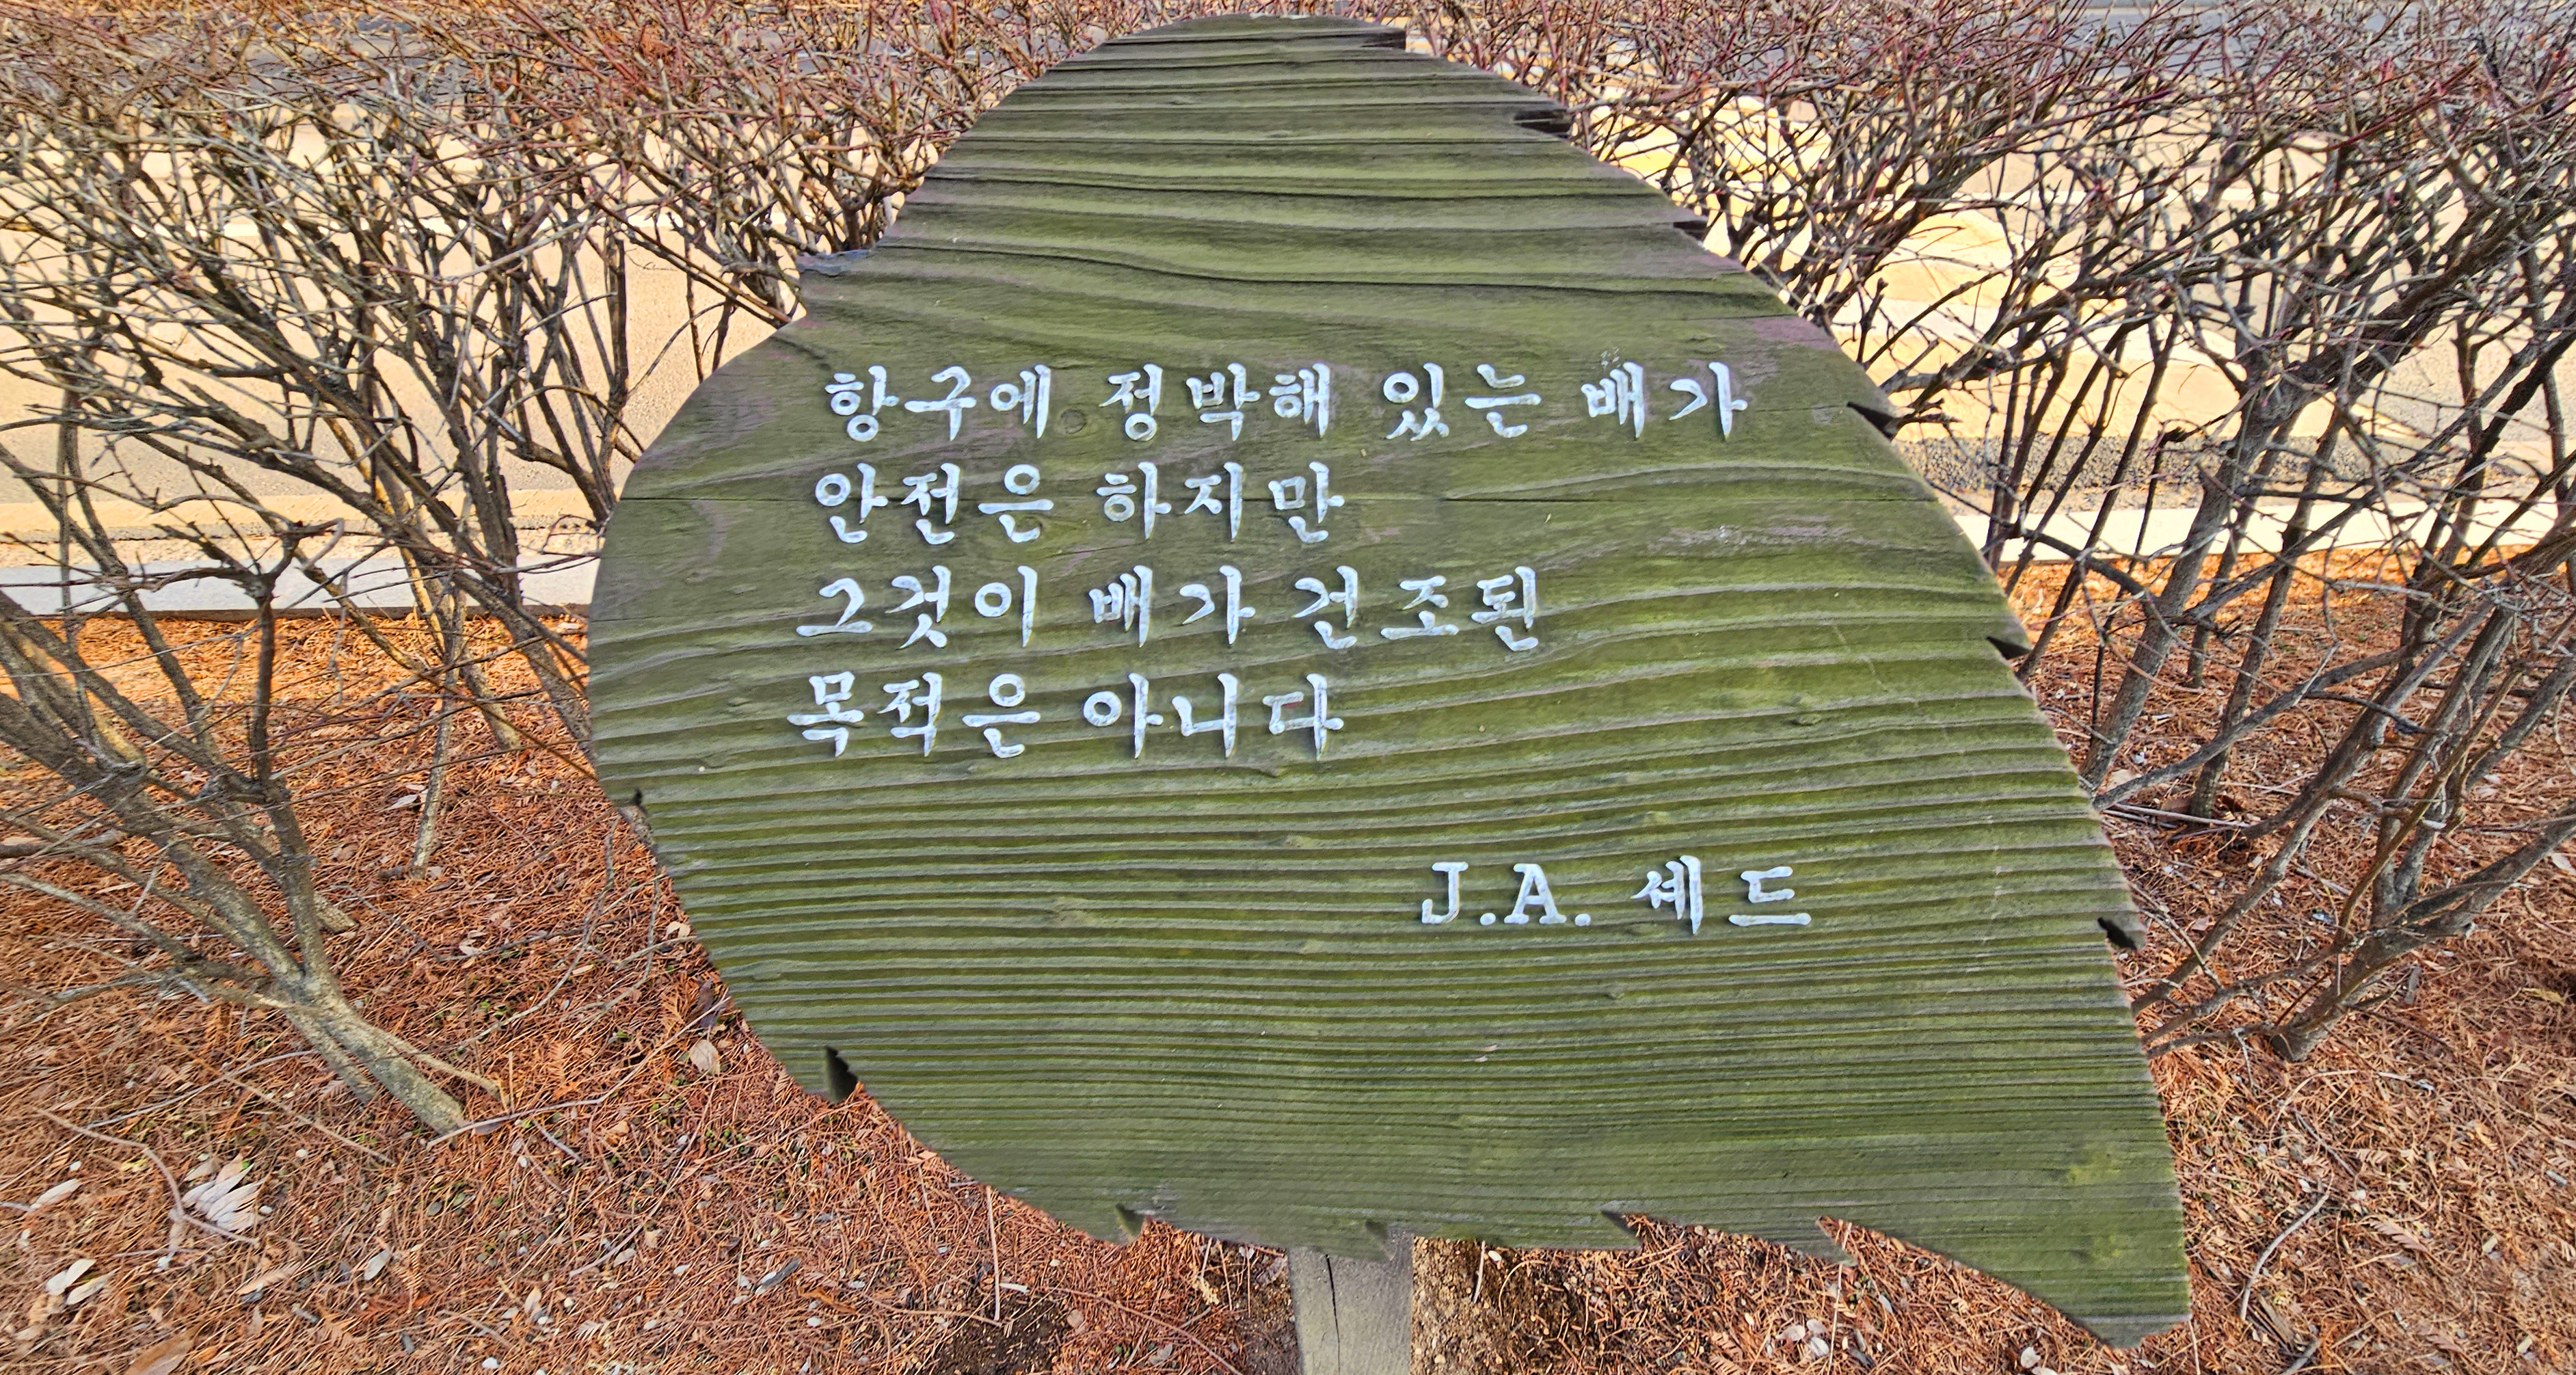 항구에 정박해 있는 배가
안전은 하지만
그것이 배가 건조된
목적은 아니다
J.A. 셰드